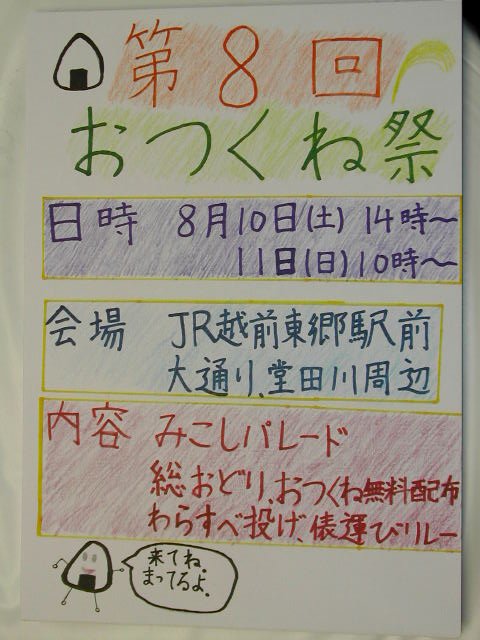 第8回
おつくね祭
日時 8月10日(土) 14時～
11日(日)10時～
会場 JR越前東郷駅前
大通り、堂田川周辺
内容 みこしパレード
総おどり、おつくね無料配布
わらすべ投げ、俵運びリレー
来てね。
まってるよ。